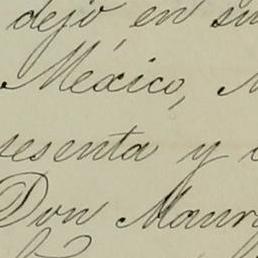 dejó en su
México,
sesenta y
Don Manu